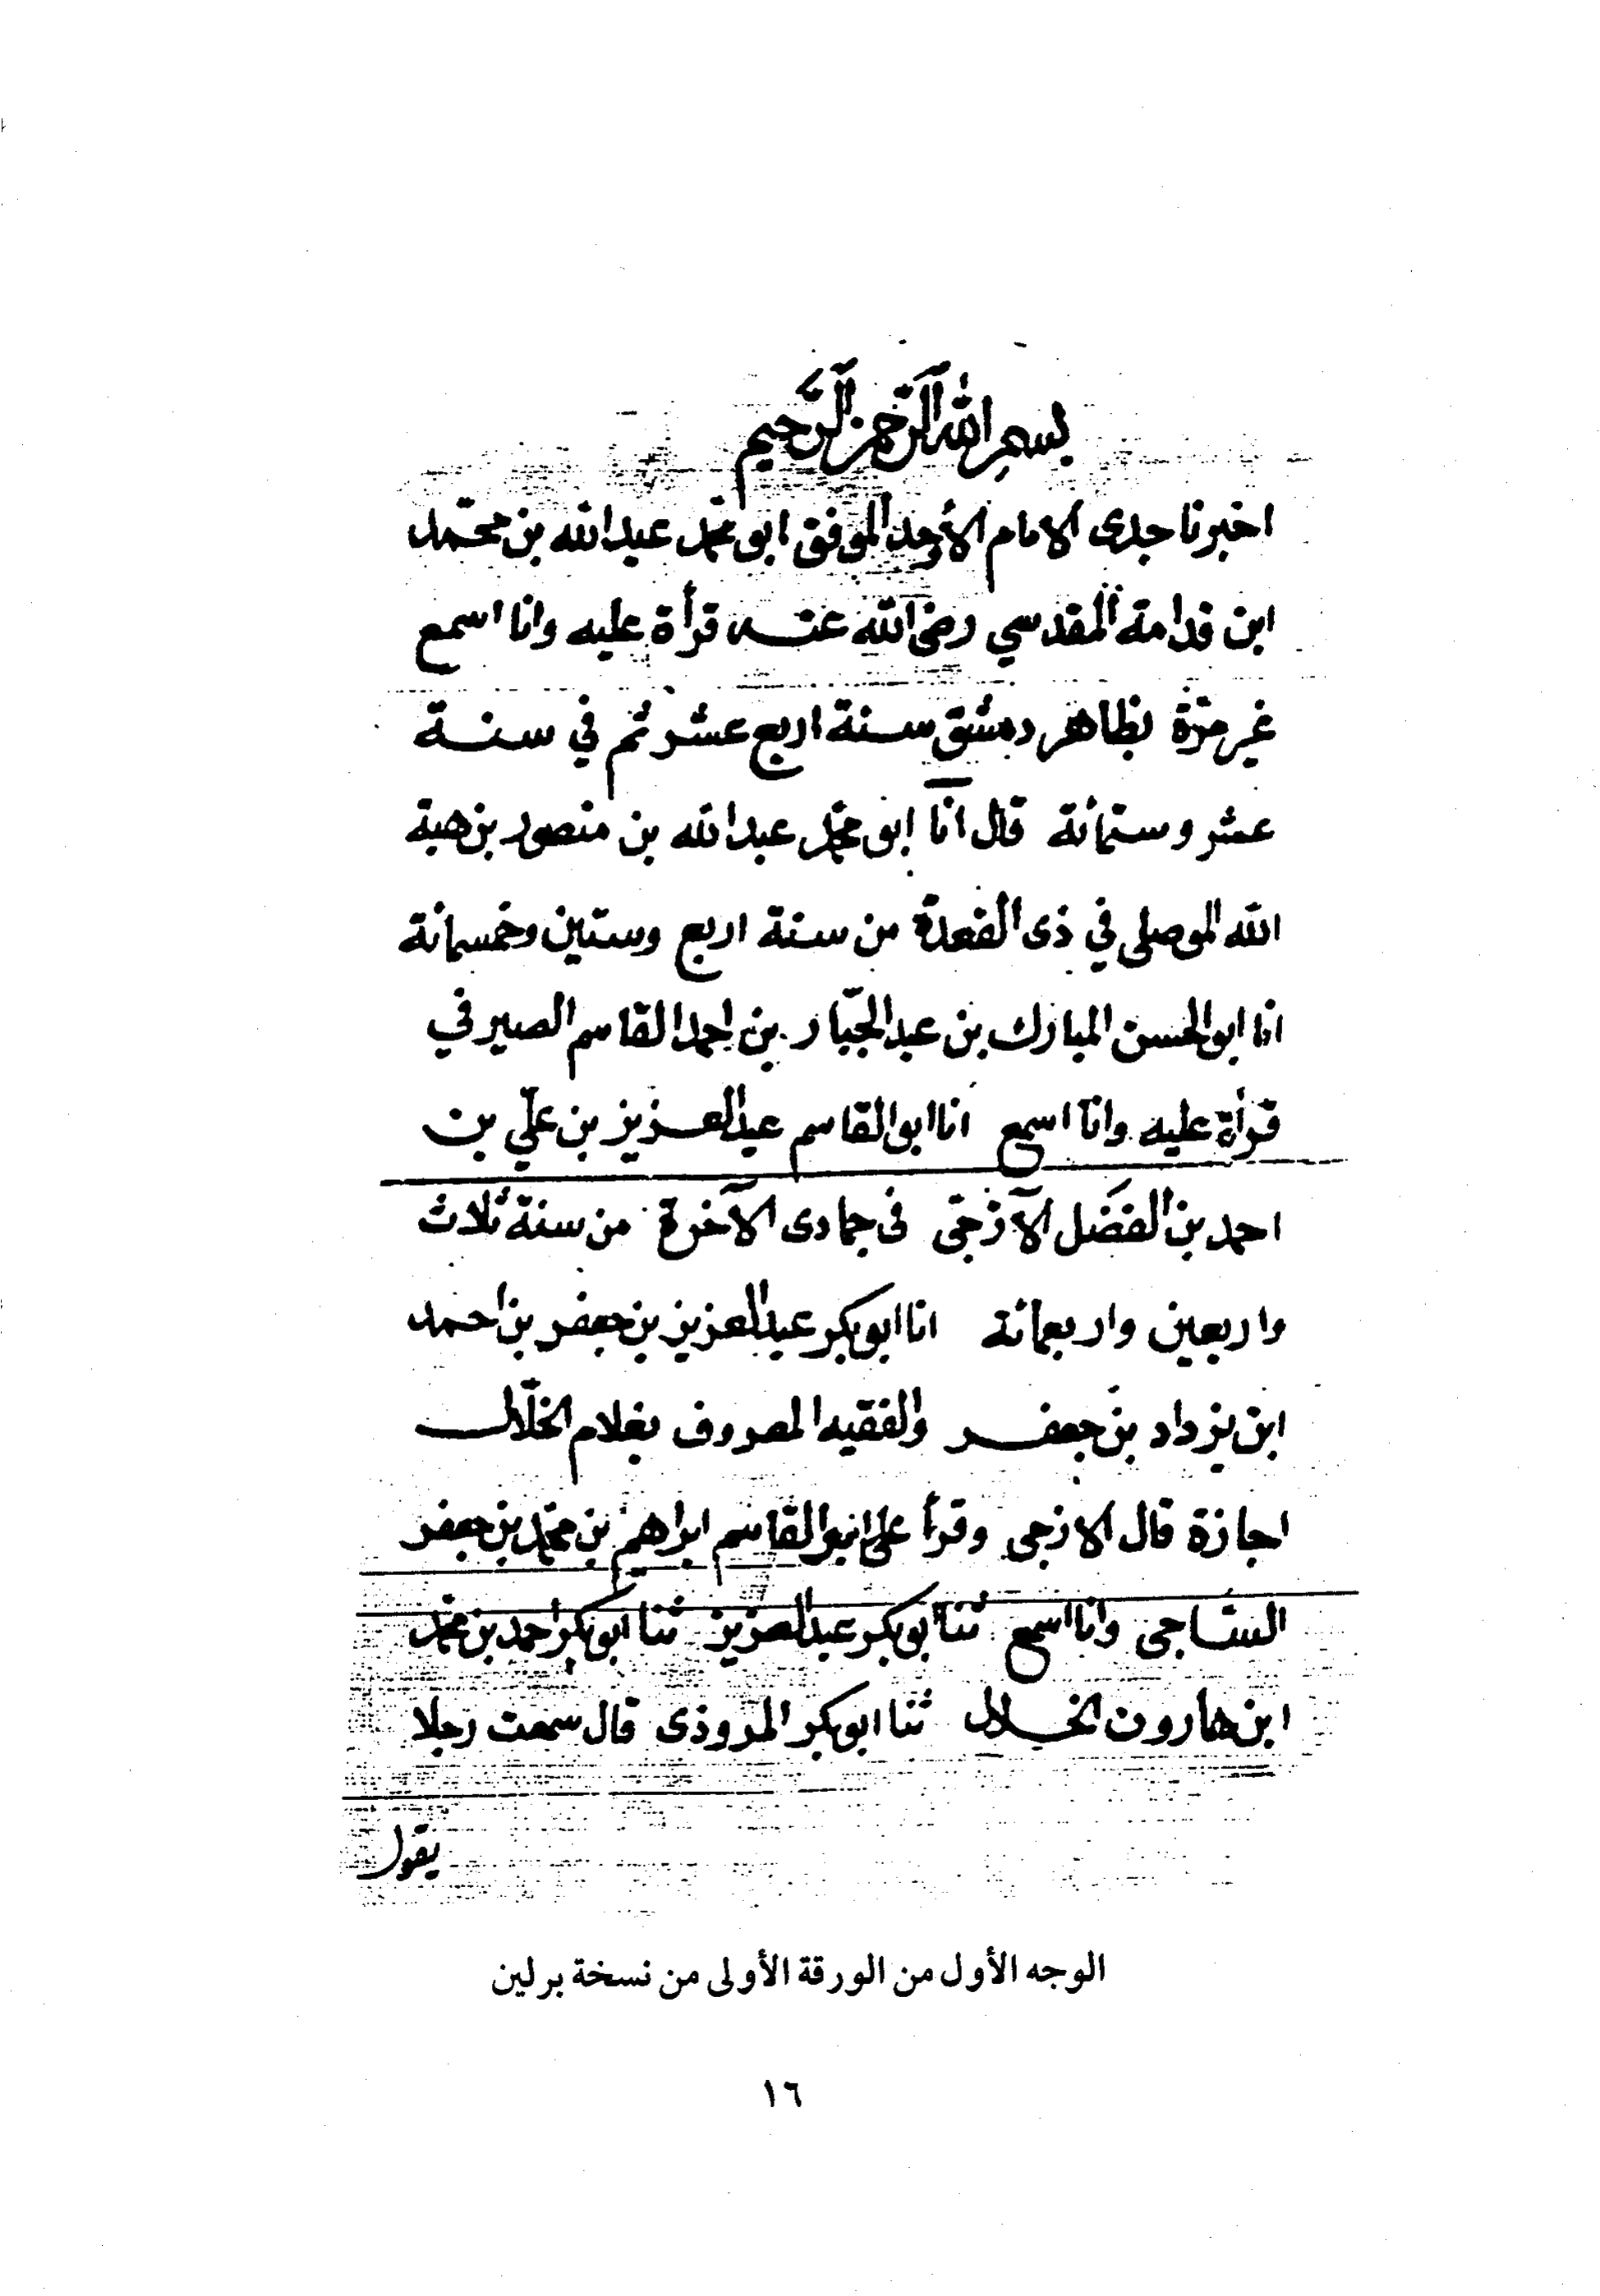 بسم الله الرحمن الرحيم
اخبرنا جدى الامام الأوحد الموفق ابو محمد عبدالله بن محمد
ابن قدامة المقدسي رضى الله عنه قرأة عليه وانا اسمع
غير مرة بظاهر دمشق سنة اربع عشر ثم في سنة
عشر وستمائة قال انا ابو محمد عبدالله بن منصور بن هبة
الله الموصلى في ذى القعدة من سنة اربع وستين وخمسمائة
انا ابو الحسن المبارك بن عبد الجبّار بن احمد القاسم الصيرفي
قرأة عليه وانا اسمع انا ابو القاسم عبد العزيز بن علّي بن
احمد بن الفضل الآزجّى فى جمادى الآخرة من سنة ثلاث
واربعين واربعمائة انا ابو بكر عبد العزيز بن جعفر بن احمد
ابن يزداد بن جعفر والفقيه المعروف بغلام الخلّال
اجازة قال الازجى وقرأ على ابو القاسم ابراهيم بن محمد بن جعفر
الساجى وانا اسمع ثنا ابو بكر عبد العزيز ثنا ابو بكر احمد بن محمد
ابن هارون الخلال ثنا ابو بكر المروذى قال سمعت رجلا
يقول
الوجه الأول من الورقة الأولى من نسخة برلين
١٦